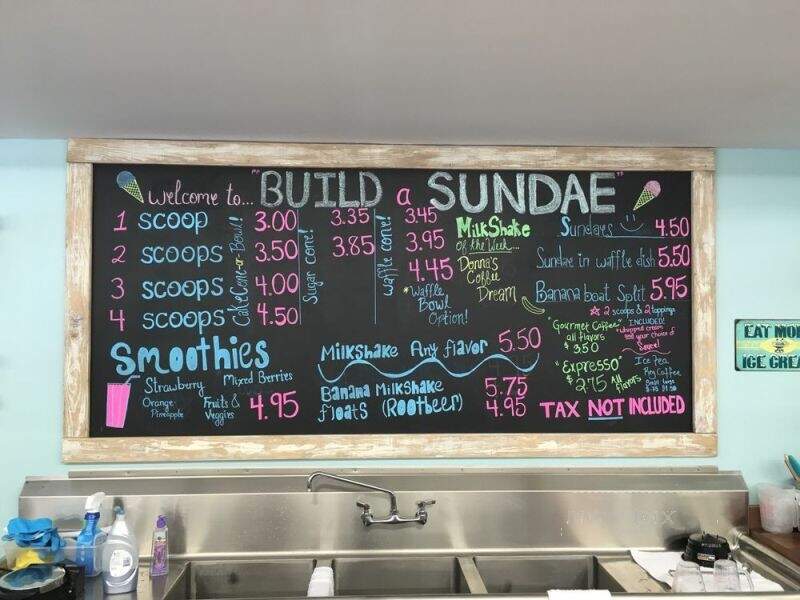 welcome to... "BUILD a SUNDAE"
1 SCOOP 3.00 3.35 3.45
2 SCOOPS 3.50 3.85 3.95
3 SCOOPS 4.00 4.45
4 SCOOPS 4.50
Cake Cone or Bowl!
Sugar cone!
waffle cone!
*Waffle
Bowl
Option!
MilkShake
Of the Week...
Donna's
Coffee
Dream
Sundaes 4.50
Sundae in waffle dish 5.50
Banana boat Split 5.95
2 scoops & 2 toppings
INCLUDED!
whipped cream
and your choice of
Sauce!
"Gourmet Coffee"
all flavors
$3.50
"Expresso"
$2.75 All
flavors
Ice Tea
Reg Coffee
Smoothies
Strawberry Mixed Berries
Orange-
Pineapple
Fruits &
Veggies 4.95
Milkshake Any flavor 5.50
Banana Milkshake 5.75
floats (Rootbeer) 4.95
TAX NOT INCLUDED
EAT MOR
ICE CREA